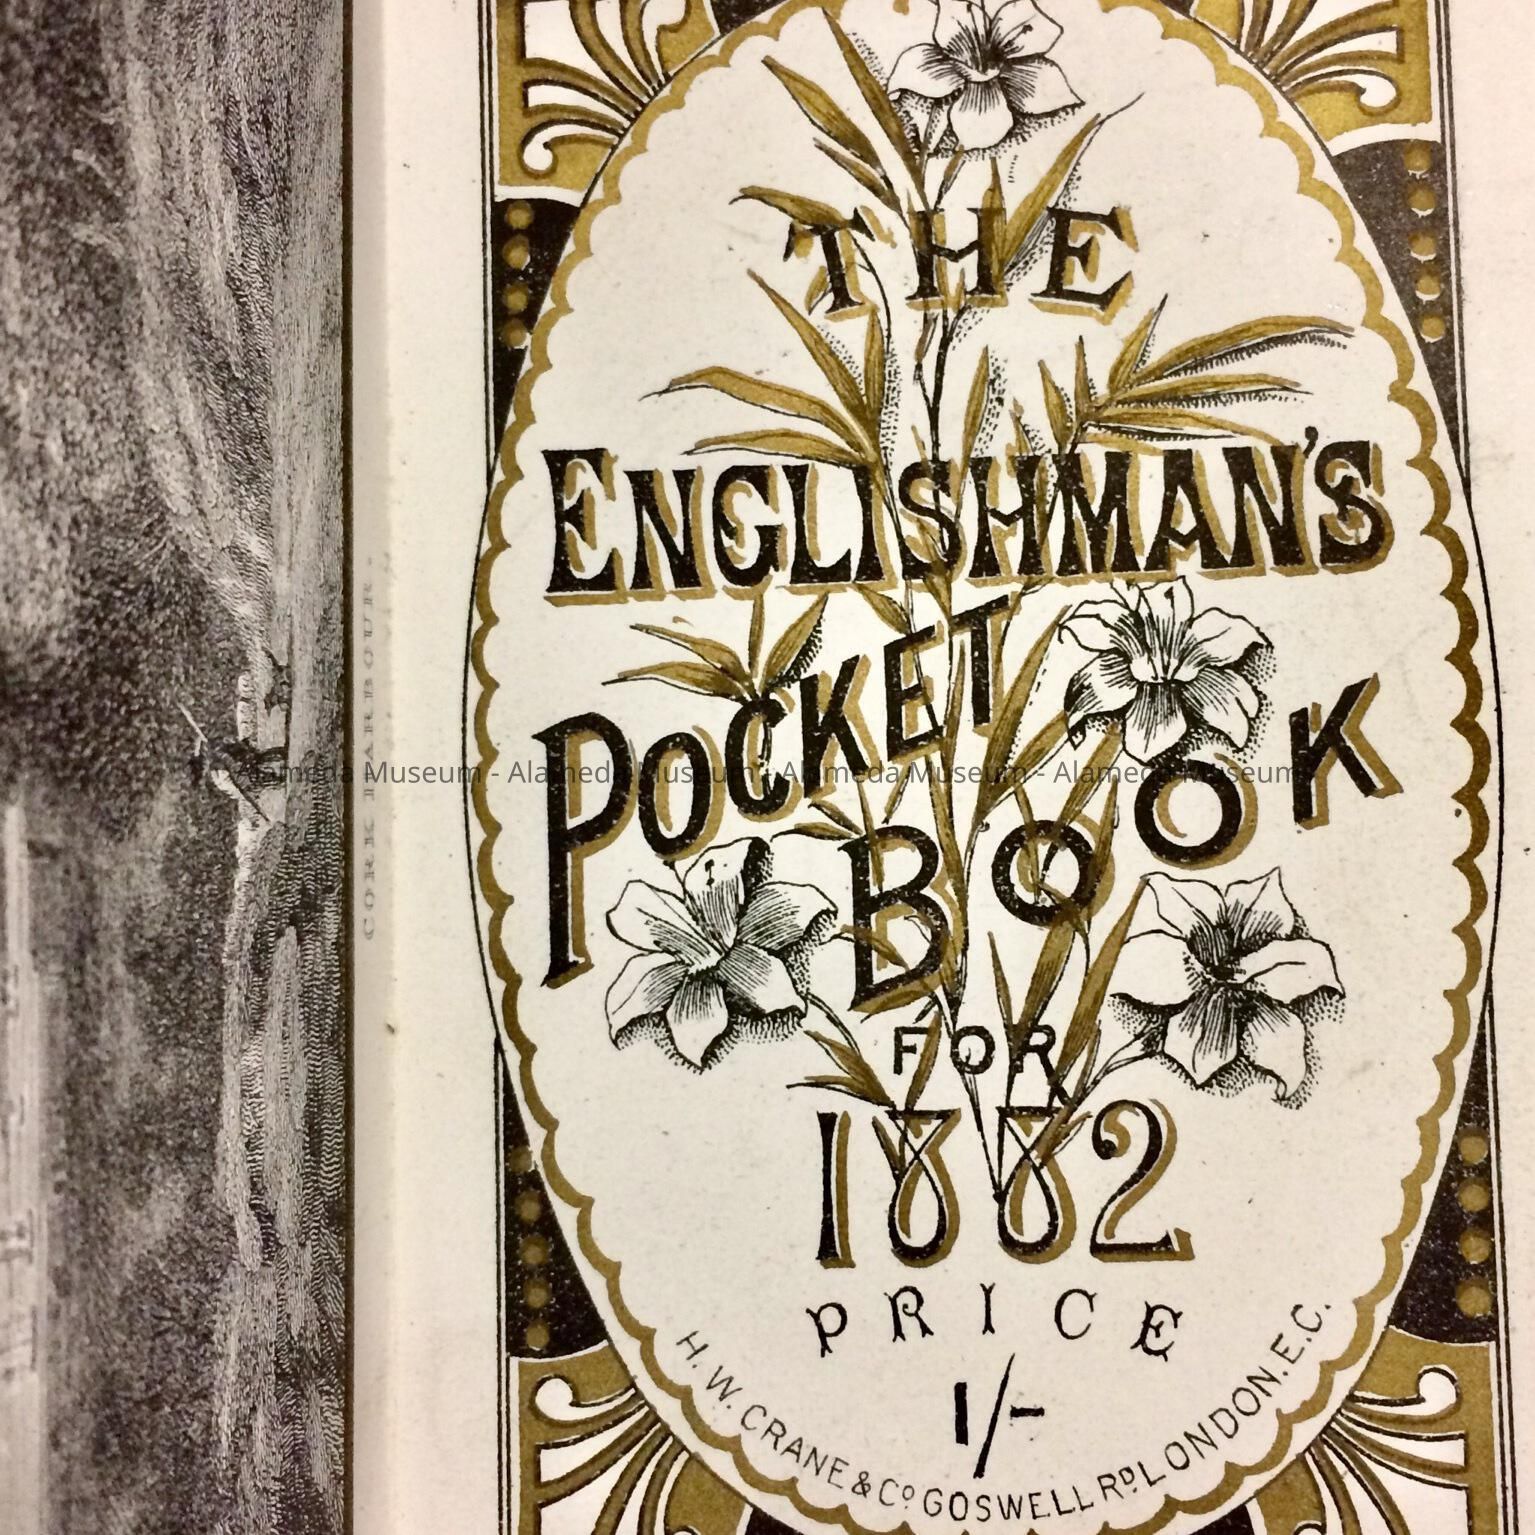 THE
ENGLISHMAN'S
POCKET
BOOK
FOR
1882
PRICE
1/-
H. W. CRANE & Co GOSWELL RD LONDON. E.C.
CORK HARBOUR.
Alameda Museum - Alameda Museum - Alameda Museum - Alameda Museum